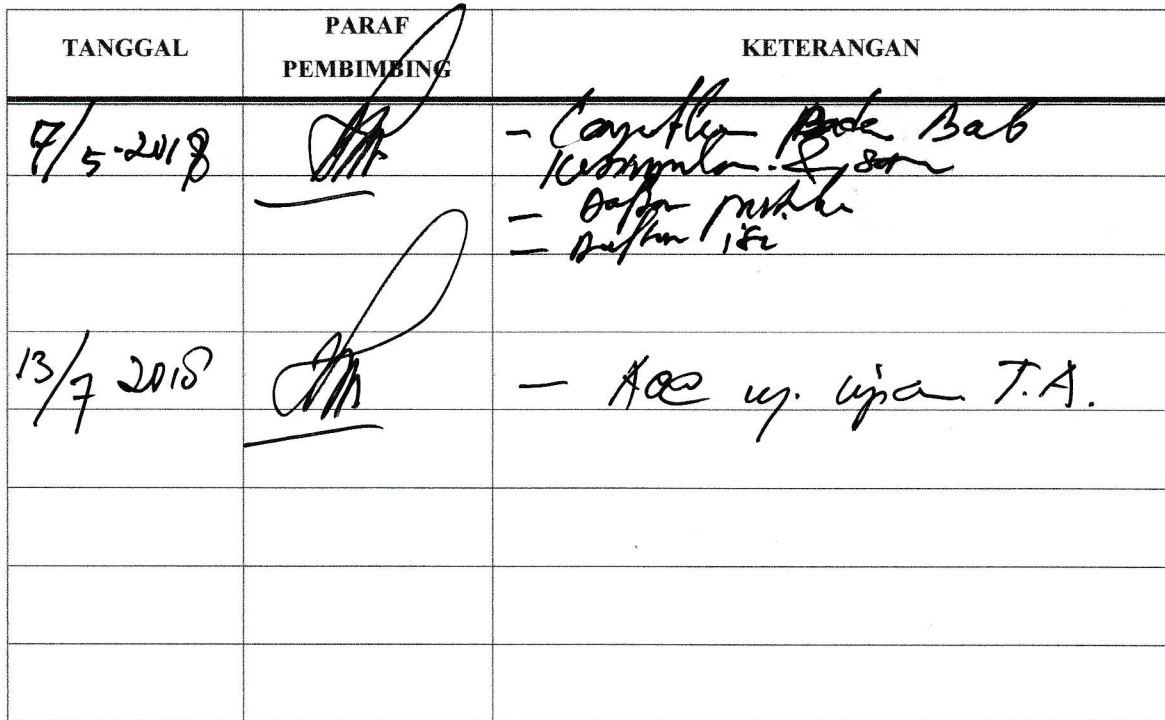 TANGGAL
PARAF
PEMBIMBING
KETERANGAN
7/5-2018
- Lanjutkan Pada Bab
Kesimpulan & saran
- Daftar pustaka
- Daftar isi
13/7 2018
- Acc ujian T.A.